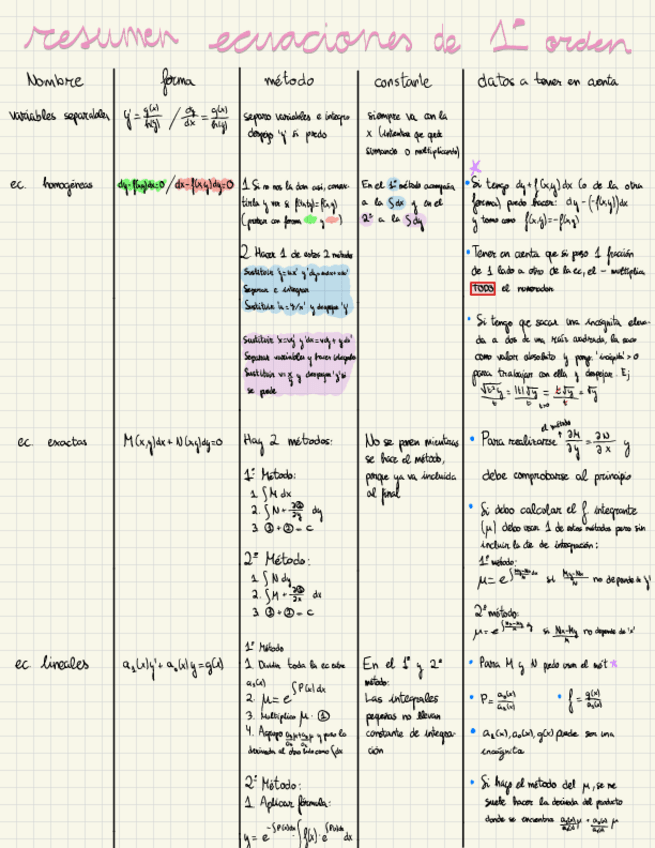 resumen ecuaciones de 1º orden
Nombre
forma
método
constante
datos a tener en cuenta
variables separables
y' = g(x)/h(y) / dy/dx = g(x)/h(y)
separo variables e integro
despejo 'y' si puedo
siempre va con la
x (intentar que quede
sumando o multiplicando)
ec. homogéneas
dy-f(x,y)dx=0 / dx-f(x,y)dy=0
1 Si no nos la dan así,
2 Hacer 1 de estos 2 métodos
Separar e integrar
Separar variables y hacer integrales
se puede
En el 1º método acompaña
a la ∫dx y en el
2º a la ∫dy
Si tengo dy+f(x,y)dx (o de la otra
forma) puedo hacer: dy-(-f(x,y))dx
y tomo como f(x,y)=-f(x,y)
Tener en cuenta que si paso 1 fracción
de 1 lado a otro de la ec, el - multiplica
TODO el numerador
Si tengo que sacar una incógnita eleva-
da a dos de una raíz cuadrada, la saco
como valor absoluto y pongo 'incógnita'>0
para trabajar con ella y despejar. Ej
√t²y/t = |t|√y/t = t√y/t = √y
t>0
ec. exactas
M(x,y)dx+N(x,y)dy=0
Hay 2 métodos:
1º Método:
1. ∫M dx
3. ①+②=c
2º Método:
1. ∫N dy
3. ①+②=c
No se ponen mientras
se hace el método,
porque ya va incluida
al final
el método
Para realizarse + ∂M/∂y = ∂N/∂x y
debe comprobarse al principio
Si debo calcular el f integrante
(μ) debo usar 1 de estos métodos pero sin
incluir la cte de integración:
1º método:
no depende de 'y'
2º método:
no depende de 'x'
ec. lineales
a₁(x)y'+a₀(x)y=g(x)
1º Método
1. Dividir toda la ec entre
a₁(x)
2. μ=e^∫P(x)dx
3. Multiplico μ · ①
2º Método:
1 Aplicar fórmula:
y=e^-∫P(x)dx ∫f(x)·e^∫P(x)dx dx
En el 1º y 2º
método:
Las integrales
pequeñas no llevan
constante de integra-
ción
Para M y N puedo usar el mét
P= a₀(x)/a₁(x)
f= g(x)/a₁(x)
a₁(x), a₀(x), g(x) puede ser una
incógnita
Si hago el método del μ, se me
suele hacer la derivada del producto
donde se encuentra